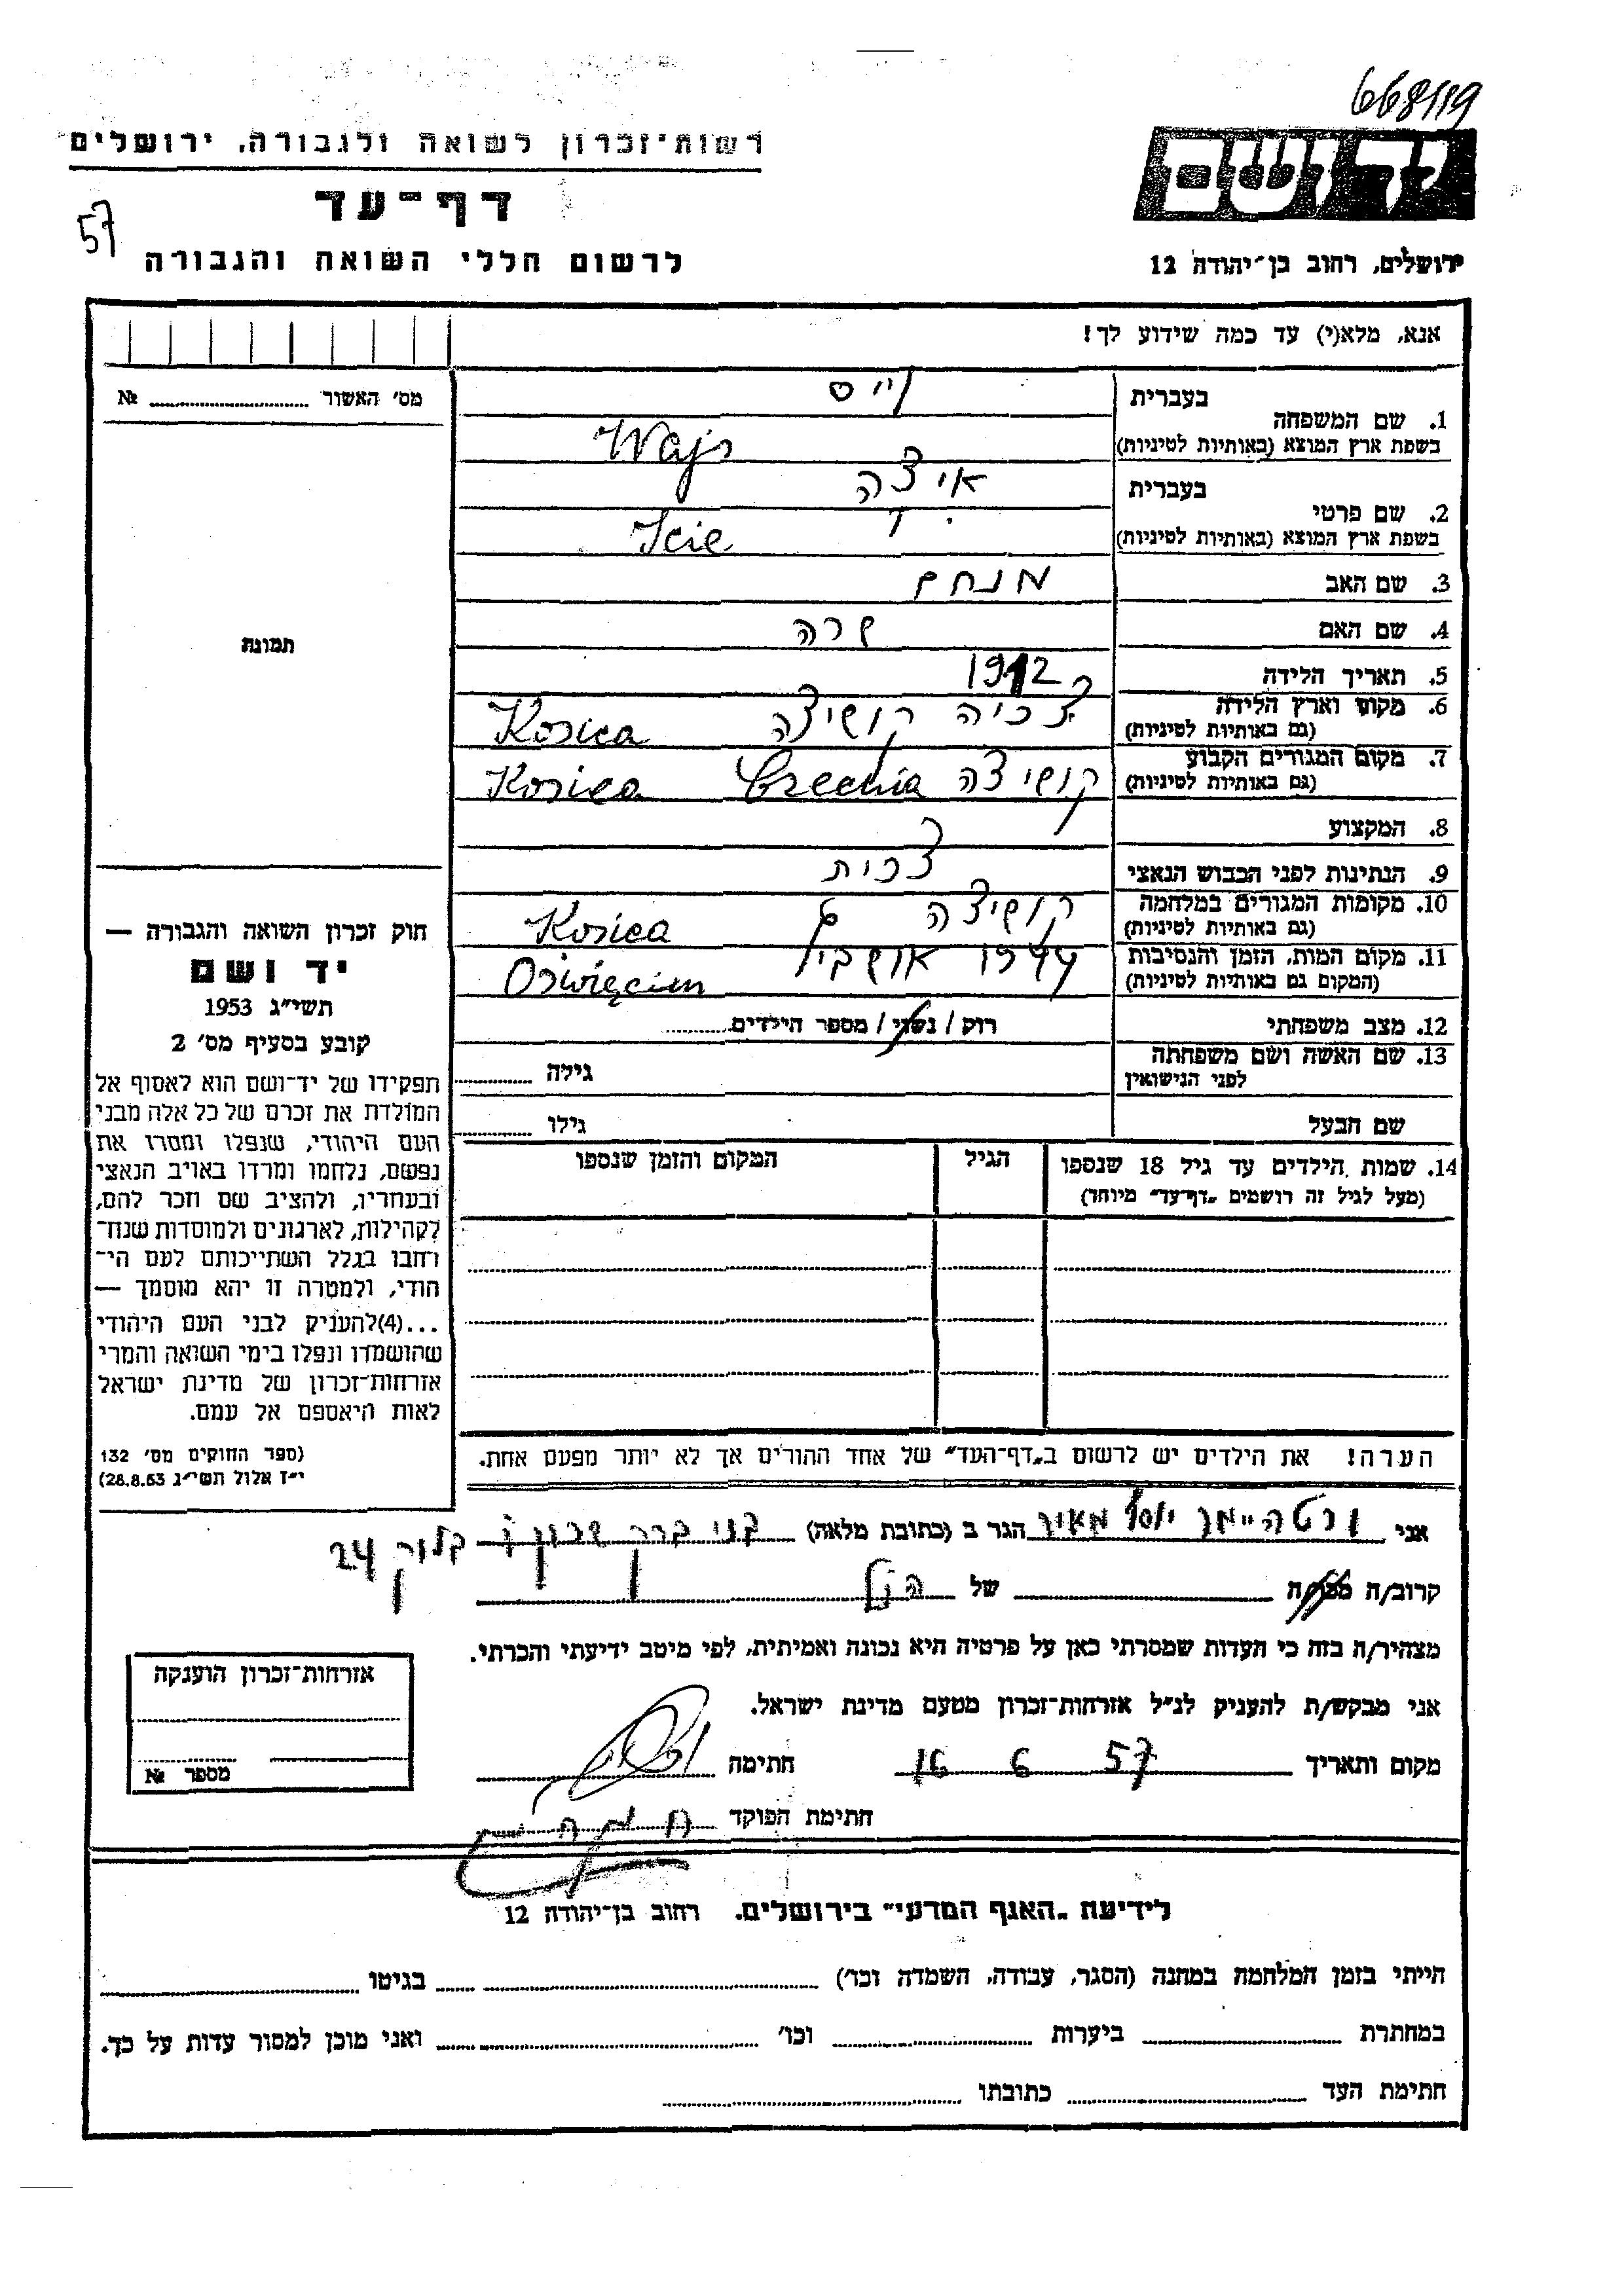 668/119
רשות־זכרון לשואה ולגבורה, ירושלים
יד ושם
דף־עד
57
לרשום חללי השואה והגבורה
ירושלים, רחוב בן־יהודה 12
אנא, מלא(י) עד כמה שידוע לך!
מס׳ האשור № 
בעברית
1. שם המשפחה
וייס
בשפת ארץ המוצא (באותיות לטיניות)
Wajs
בעברית
2. שם פרטי
איצה
בשפת ארץ המוצא (באותיות לטיניות)
Icie
3. שם האב מנחם
4. שם האם שרה
תמונה
5. תאריך הלידה 1912
6. מקום וארץ הלידה צכיה קושיצה Kosica
(גם באותיות לטיניות)
7. מקום המגורים הקבוע קושיצה Czechia Kosica
(גם באותיות לטיניות)
8. המקצוע
9. הנתינות לפני הכבוש הנאצי צכית
10. מקומות המגורים במלחמה קושיצה Kosica
(גם באותיות לטיניות)
11. מקום המות, הזמן והנסיבות 1944 אושביץ Oświęcim
(המקום גם באותיות לטיניות)
12. מצב משפחתי רוק / נשוי / מספר הילדים
13. שם האשה ושם משפחתה גילה
לפני הנישואין
שם הבעל גילו
14. שמות הילדים עד גיל 18 שנספו הגיל המקום והזמן שנספו
(מעל לגיל זה רושמים „דף־עד״ מיוחד)
הערה! את הילדים יש לרשום ב„דף־העד״ של אחד ההורים אך לא יותר מפעם אחת.
חוק זכרון השואה והגבורה —
יד ושם
תשי״ג 1953
קובע בסעיף מס׳ 2
תפקידו של יד־ושם הוא לאסוף אל
המולדת את זכרם של כל אלה מבני
העם היהודי, שנפלו ומסרו את
נפשם, נלחמו ומרדו באויב הנאצי
ובעוזריו, ולהציב שם וזכר להם,
לקהילות, לארגונים ולמוסדות שנח־
רבו בגלל השתייכותם לעם הי־
הודי, ולמטרה זו יהא מוסמך —
...(4)להעניק לבני העם היהודי
שהושמדו ונפלו בימי השואה והמרי
אזרחות־זכרון של מדינת ישראל
לאות היאספם אל עמם.
(ספר החוקים מס׳ 132
י״ז אלול תשי״ג 28.8.53)
אני ורטהיימר יוסף מאיר הגר ב (כתובת מלאה) 24
קרוב/ה מכר/ה של הנ״ל
מצהיר/ה בזה כי העדות שמסרתי כאן על פרטיה היא נכונה ואמיתית, לפי מיטב ידיעתי והכרתי.
אני מבקש/ת להעניק לנ״ל אזרחות־זכרון מטעם מדינת ישראל.
מקום ותאריך 16 6 57 חתימה
חתימת הפוקד
אזרחות־זכרון הוענקה
מספר №
לידיעת „האגף המדעי״ בירושלים. רחוב בן־יהודה 12
הייתי בזמן המלחמה במחנה (הסגר, עבודה, השמדה וכו׳) בגיטו
במחתרת ביערות וכו׳ ואני מוכן למסור עדות על כך.
חתימת העד כתובתו